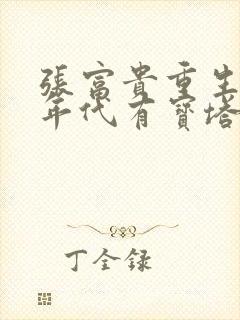 張富貴重生
年代有寶塔
丁全録